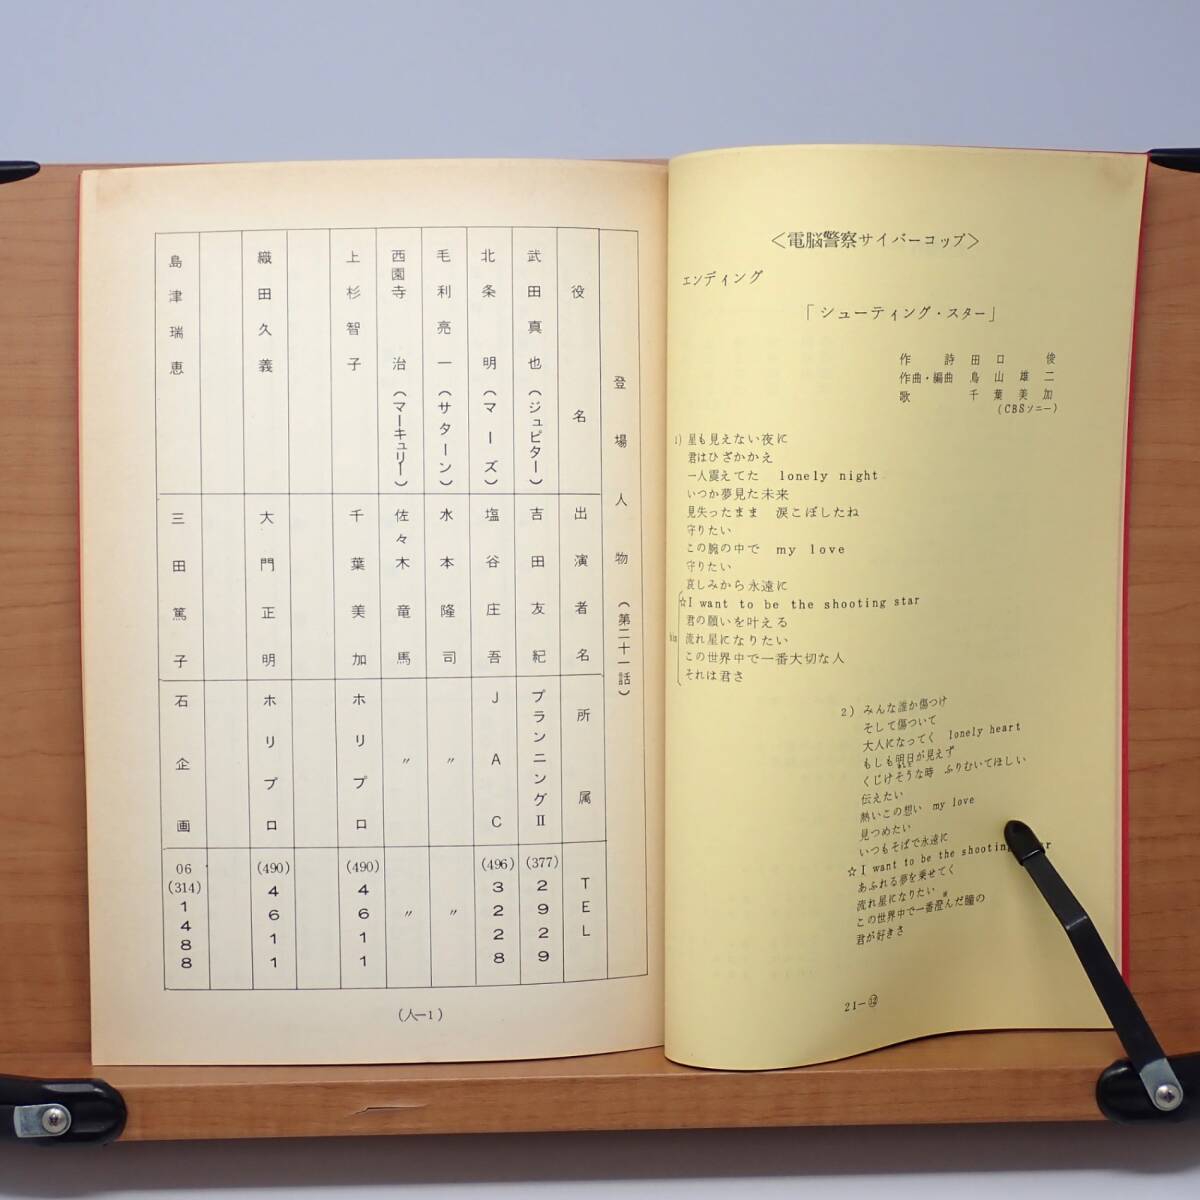 ＜電脳警察サイバーコップ＞
エンディング
「シューティング・スター」
作詩 田口俊
作曲・編曲 鳥山雄二
歌 千葉美加
(CBSソニー)
1) 星も見えない夜に
君はひざかかえ
一人震えてた lonely night
いつか夢見た未来
見失ったまま 涙こぼしたね
守りたい
この腕の中で my love
守りたい
哀しみから永遠に
☆I want to be the shooting star
君の願いを叶える
流れ星になりたい
この世界中で一番大切な人
それは君さ
2) みんな誰か傷つけ
そして傷ついて
大人になってく lonely heart
もしも明日が見えず
くじけそうな時 ふりむいてほしい
伝えたい
熱いこの想い my love
見つめたい
いつもそばで永遠に
☆I want to be the shooting star
あふれる夢を乗せてく
流れ星になりたい
この世界中で一番澄んだ瞳の
君が好きさ
21-⑫
登場人物（第二十一話）
役名 出演者名 所属 TEL
武田真也（ジュピター） 吉田友紀 プランニングⅡ (377) 2929
北条明（マーズ） 塩谷庄吾 JAC (496) 3228
毛利亮一（サターン） 水本隆司 〃 〃
西園寺治（マーキュリー） 佐々木竜馬 〃 〃
上杉智子 千葉美加 ホリプロ (490) 4611
織田久義 大門正明 ホリプロ (490) 4611
島津瑞恵 三田篤子 石企画 06 (314) 1488
(人-1)